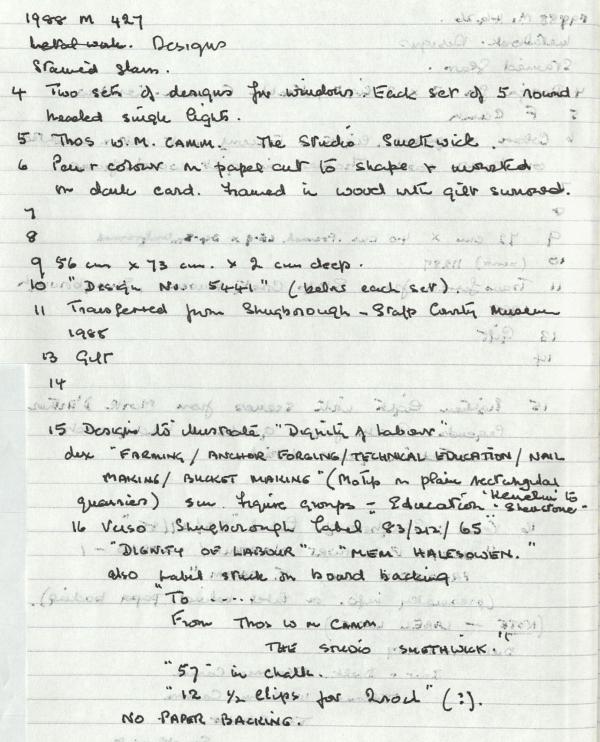 1988 M 427
Metal work. Designs
Stained Glass.
4 Two sets of designs for windows. Each set of 5 round
headed single lights.
5 Thos W. M. CAMM. The Studio Smethwick.
6 Pen + colour on paper cut to shape + mounted
on dark card. Framed in wood with gilt surround.
7
8
9 56 cm x 73 cm. x 2 cm deep.
10 "Design No. 5440" (below each set)
11 Transferred from Shugborough - Staff County Museum
1985
13 Gift
14
15 Designs to illustrate "Dignity of Labour"
"FARMING / ANCHOR FORGING / TECHNICAL EDUCATION / NAIL
MAKING / BUCKET MAKING" (Motifs on plain rectangular
quarries) figure groups - Education "Kenelm to
Shenstone"
16 Verso Shugborough label 83/212/65
"DIGNITY OF LABOUR" "MEM. HALESOWEN."
also label stuck on board backing
"To ......
From THOS W M CAMM
THE STUDIO SMETHWICK."
"57" in chalk.
"12 1/2 Clips for" (?).
NO PAPER BACKING.